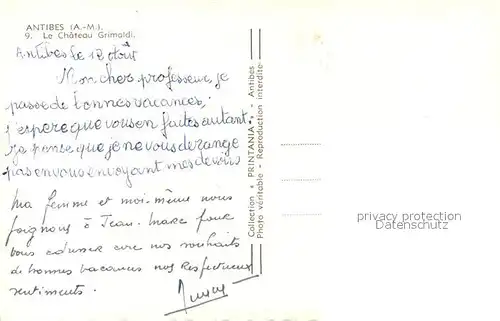 ANTIBES (A.-M.).
9. Le Château Grimaldi.
Antibes le 12 août
Mon cher professeur, je
passe de bonnes vacances,
j'espere que vous en faites autant.
Je pense que je ne vous derange
pas en vous envoyant mes devoirs
Ma femme et moi-même nous
joignons à Jean-Marc pour
vous adresser avec nos souhaits
de bonnes vacances nos Respectueux
sentiments.
Collection "PRINTANIA" - Antibes
Photo véritable - Reproduction interdite
privacy protection
Datenschutz